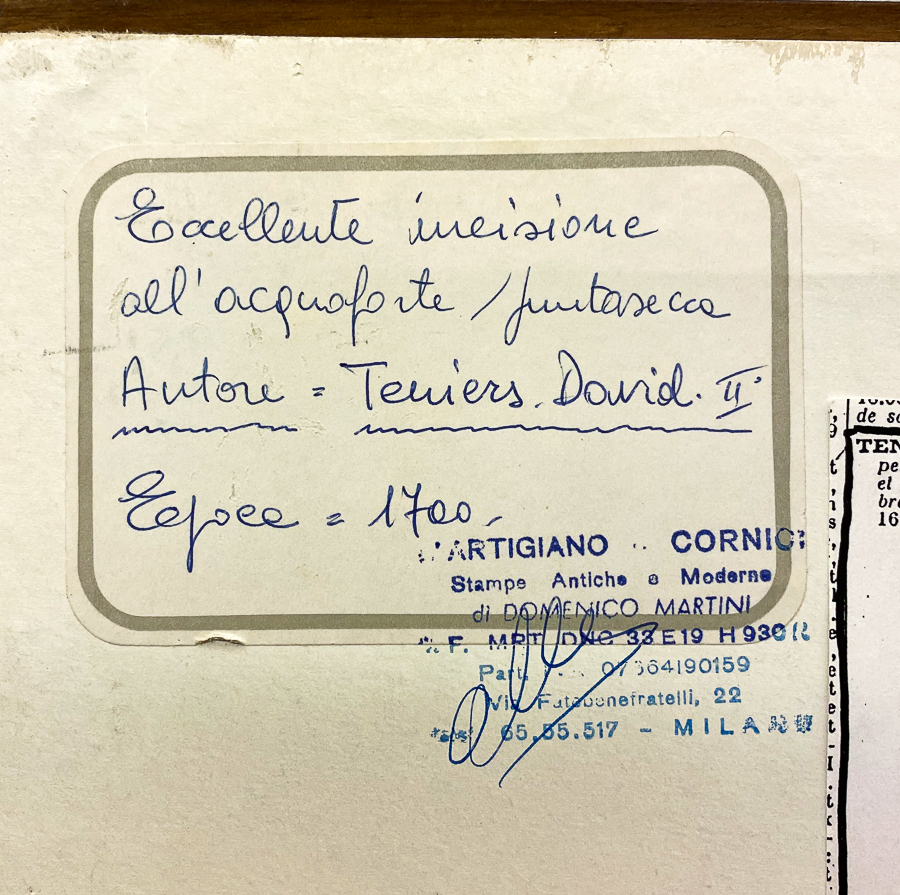 Eccellente incisione
all'acquaforte / puntasecca
Autore = Teniers David. II°
Epoca = 1700
L'ARTIGIANO CORNICI
Stampe Antiche e Moderne
di DOMENICO MARTINI
F. MRT DNC 33E19 H930
Part. 07664190159
Via Fatebenefratelli, 22
65.55.517 - MILANO
de
TEN
pe
et
bre
16